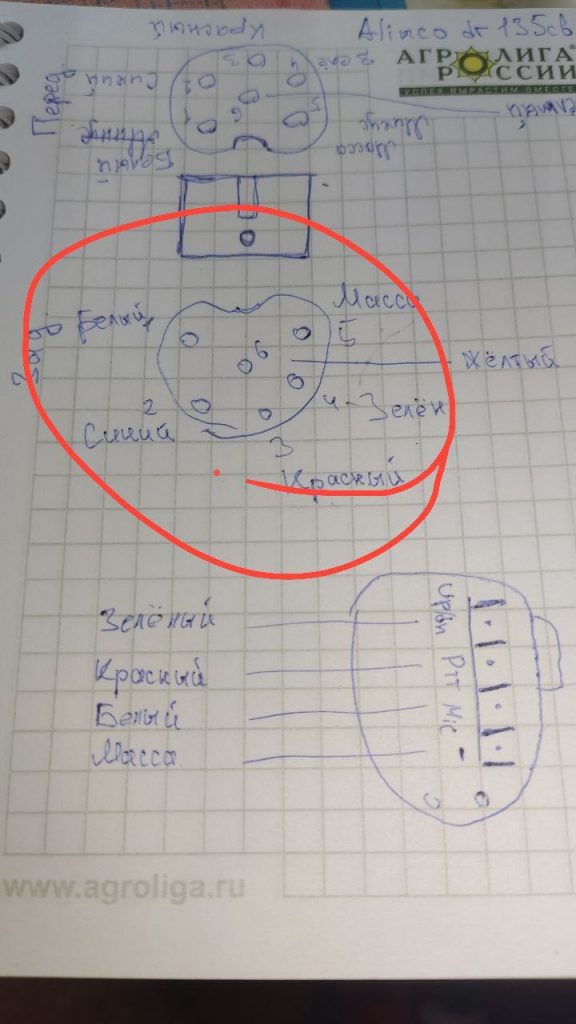 Alinco dr 135св
Красный
АГРОЛИГА
РОССИИ
УСПЕХ ВЫРАСТИМ ВМЕСТЕ
Перед.
Синий
2
3
4
зелё
1
6
5
Минус
Белый
Масса
Зад.
Белый 1
Масса
5
6
Жёлтый
2
4 - Зелён
Синий
3
Красный
Зелёный
Красный
Белый
Масса
Up/Dn PTT Mic -
www.agroliga.ru